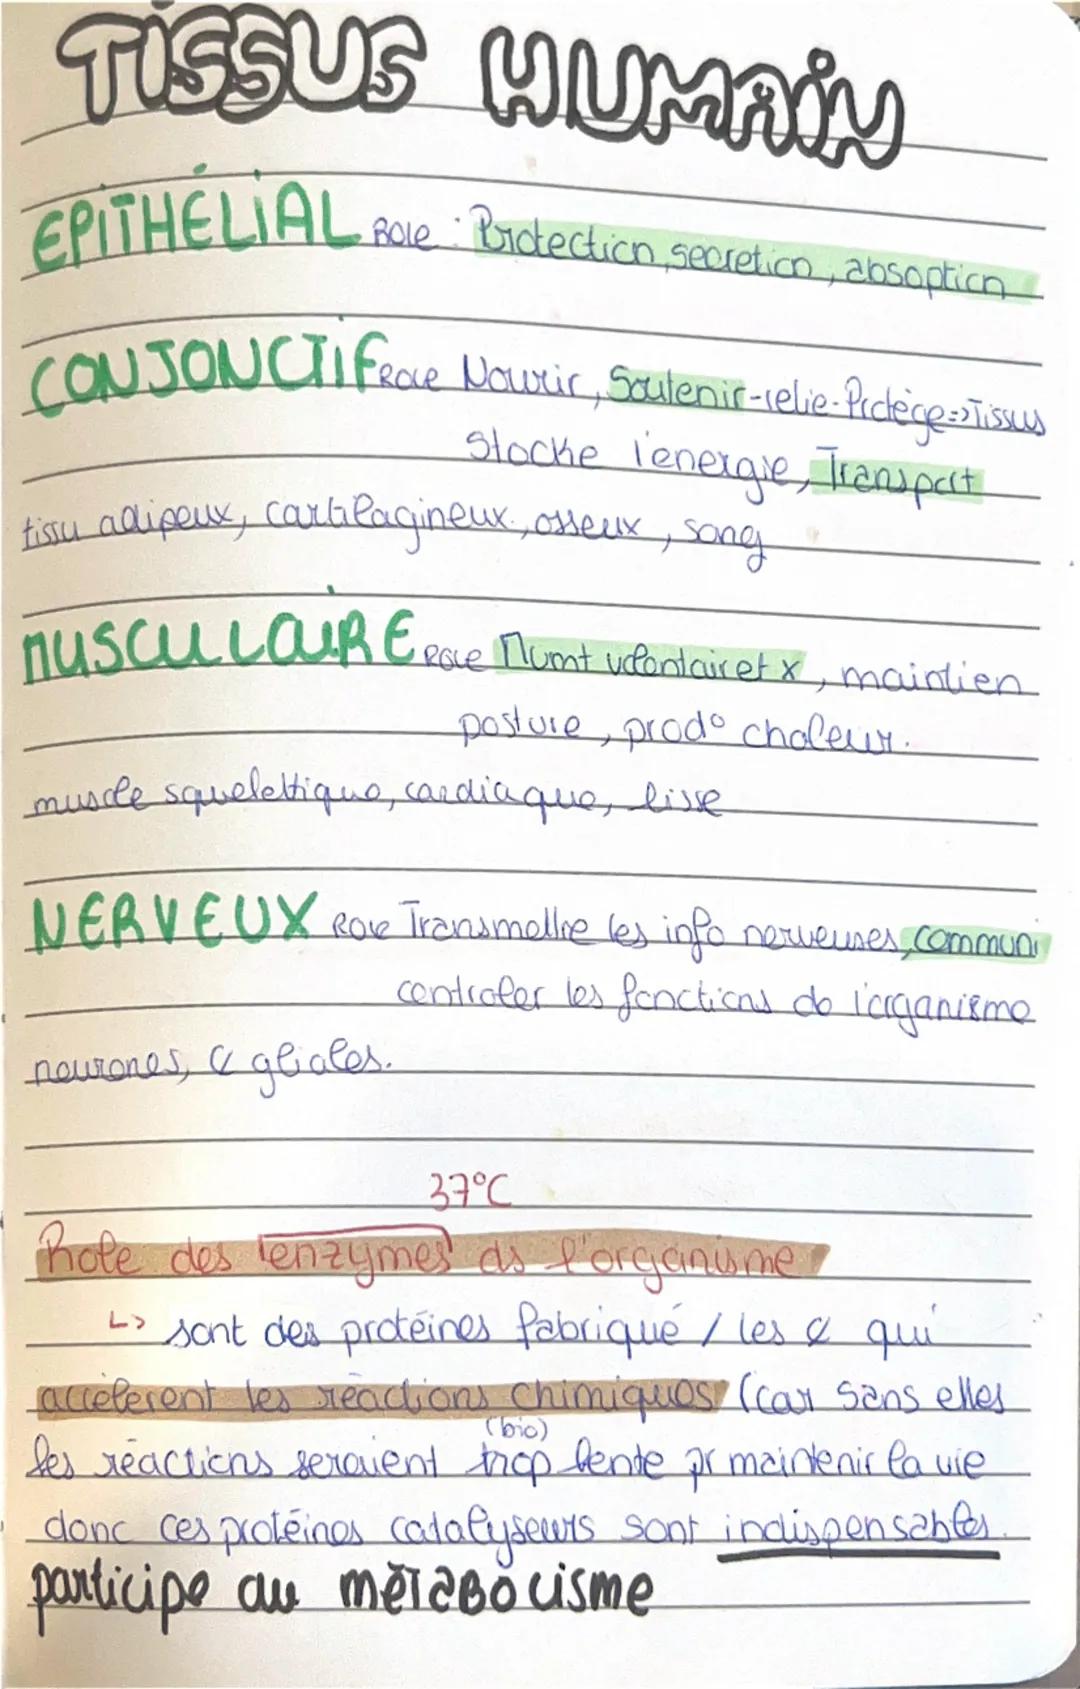 TISSUS HUMAIN
EPITHÉLIAL Role : Protection, secretion, absoption
CONJONCTIF Role Nourir, Soutenir-relie-Protège=>Tissus
Stocke l'energie, Transport
tissu adipeux, cartilagineux, osseux, sang
MUSCULAIRE Role Mvmt volontaire et x, maintien
posture, prod° chaleur.
muscle squelettique, cardiaque, lisse
NERVEUX Role Transmettre les info nerveuses, communi
controler les fonctions de l'organisme
neurones, C gliales.
37°C
Role des enzymes ds l'organisme
↳ sont des protéines fabriqué / les C qui
accélèrent les réactions chimiques (car sans elles
(bio)
les réactions seraient trop lente pr maintenir la vie
donc ces protéines catalyseurs sont indispensables.
participe au métabolisme